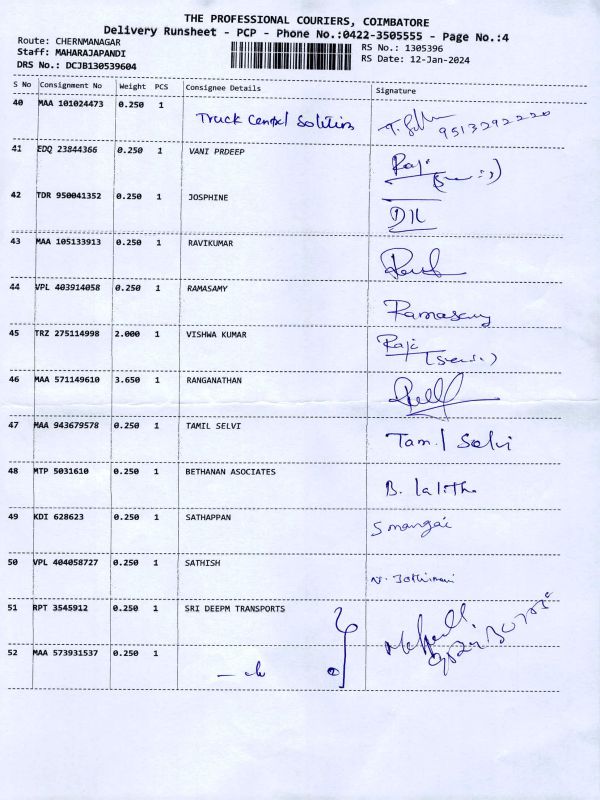 THE PROFESSIONAL COURIERS, COIMBATORE
Delivery Runsheet - PCP - Phone No.:0422-3505555 - Page No.:4
Route: CHERNMANAGAR
Staff: MAHARAJAPANDI
DRS No.: DCJB130539604
RS No.: 1305396
RS Date: 12-Jan-2024
S No Consignment No Weight PCS Consignee Details Signature
40 MAA 101024473 0.250 1 Truck 9513292220
41 EDQ 23844366 0.250 1 VANI PRDEEP Raji
42 TDR 950041352 0.250 1 JOSPHINE
43 MAA 105133913 0.250 1 RAVIKUMAR
44 VPL 403914058 0.250 1 RAMASAMY Ramasamy
45 TRZ 275114998 2.000 1 VISHWA KUMAR Raji
46 MAA 571149610 3.650 1 RANGANATHAN
47 MAA 943679578 0.250 1 TAMIL SELVI Tamil Selvi
48 MTP 5031610 0.250 1 BETHANAN ASOCIATES B. Lalitha
49 KDI 628623 0.250 1 SATHAPPAN S mangai
50 VPL 404058727 0.250 1 SATHISH N. Jothimani
51 RPT 3545912 0.250 1 SRI DEEPM TRANSPORTS
52 MAA 573931537 0.250 1